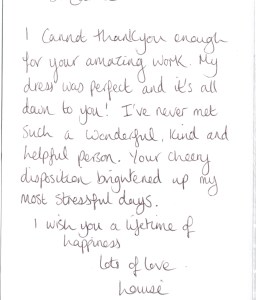 I Cannot thankyou enough
for your amazing work. My
dress was perfect and it's all
down to you! I've never met
Such a wonderful, Kind and
helpful person. Your cheery
disposition brightened up my
most stressful days.
I wish you a lifetime of
happiness
lots of love.
Louise